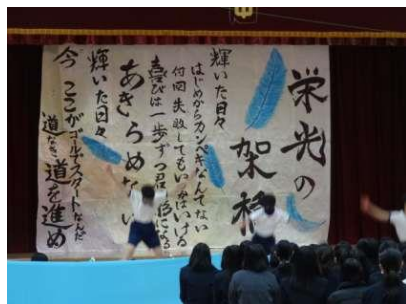 栄光の
架橋
輝いた日々
はじめからカンペキなんてない
何回失敗してもいい
喜びは一歩ずつ君の
あきらめない
輝いた日々
今 ここがゴールでスタートなんだ
道なき道を進め